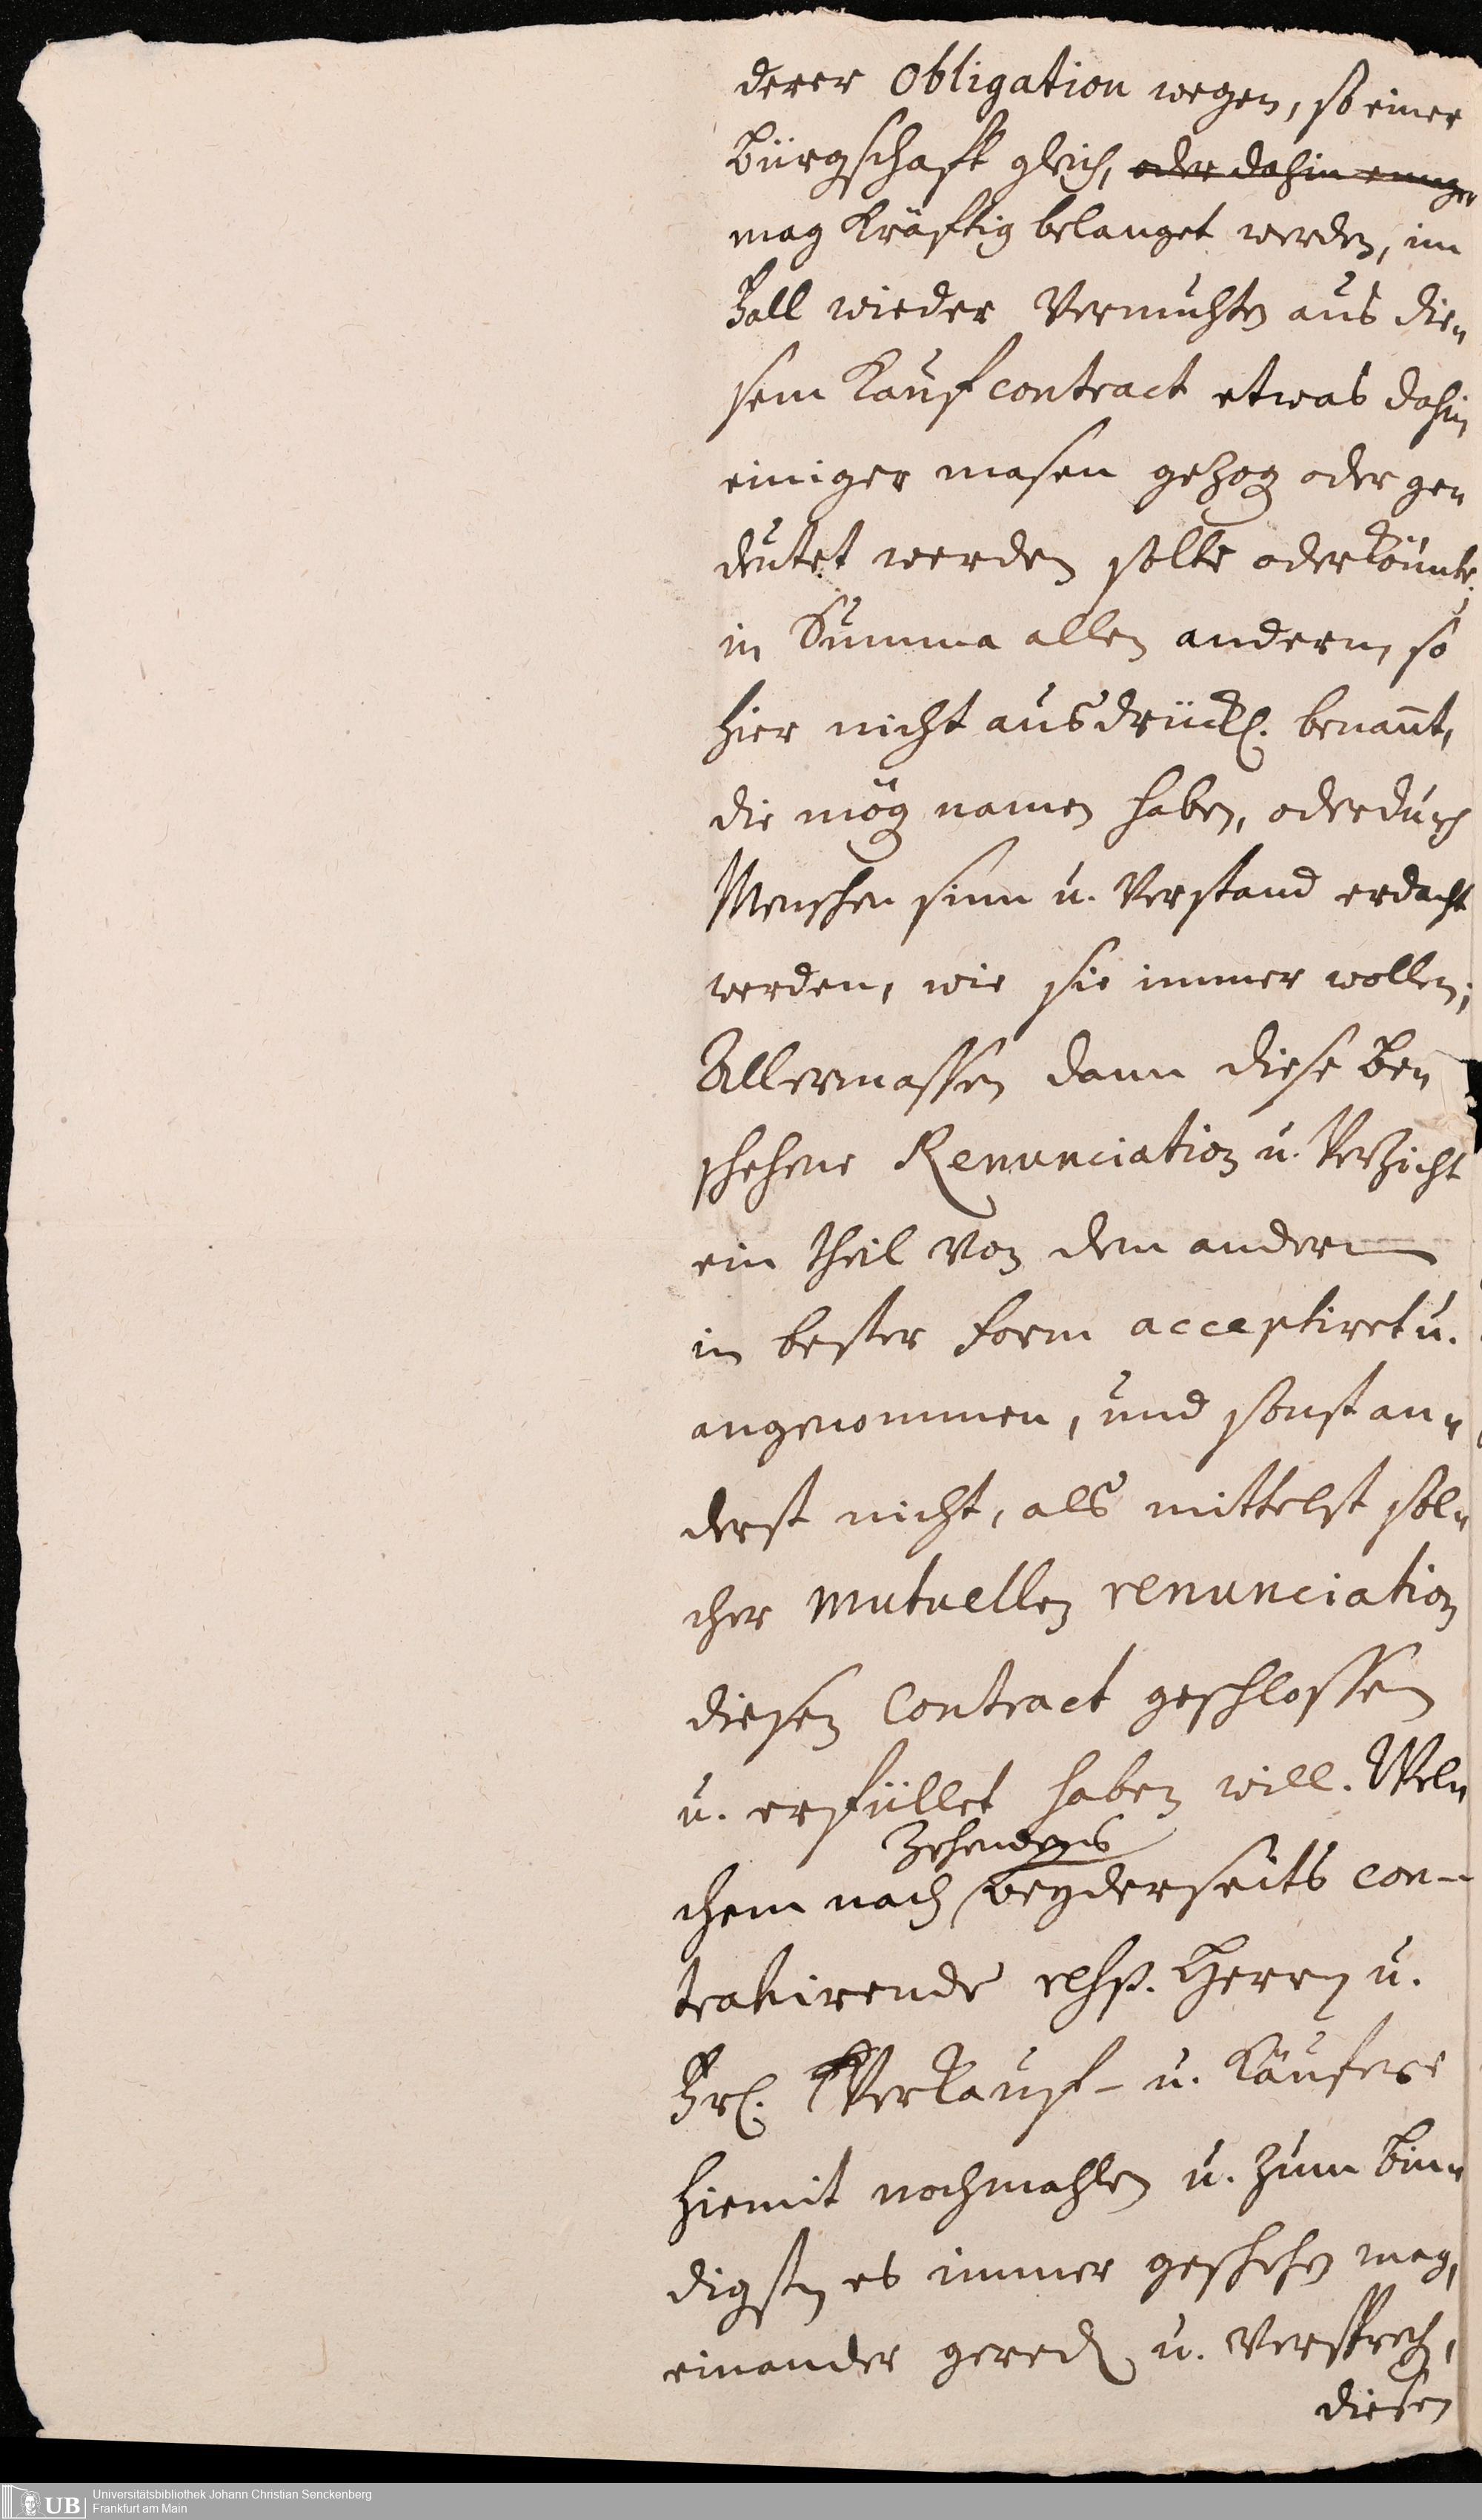 derer Obligation wegen, so einer
Bürgschafft gleich, oder dahin einiger
mag kräftig belanget werden, im
Fall wieder Vermuhten aus die„
sem Kauf contract etwas dahin
einiger masen gezog oder ge„
deutet werden solte oder könnte;
in Summa allen andern, so
hier nicht ausdrückl. benañt,
die mög namen haben, oder durch
Menschen sinn u. Verstand erdacht
werden, wie sie immer wollen;
Allermassen dann diese be„
schehene Renunciation u. Verzicht
ein theil von dem andern
in bester form acceptiret u.
angenommen, und sonst an„
derst nicht, als mittelst sol„
cher mutuellen renunciation
diesen Contract geschlossen
u. erfüllet haben will. Wel„
chem nach beyderseits con-
trahirende Herrn u.
Frl. Verkauf- u. Käufere
hiemit nochmahlen u. zum bün„
digsten es immer geschehen mag,
einander gered u. versprech,
diesen
Universitätsbibliothek Johann Christian Senckenberg
Frankfurt am Main
UB